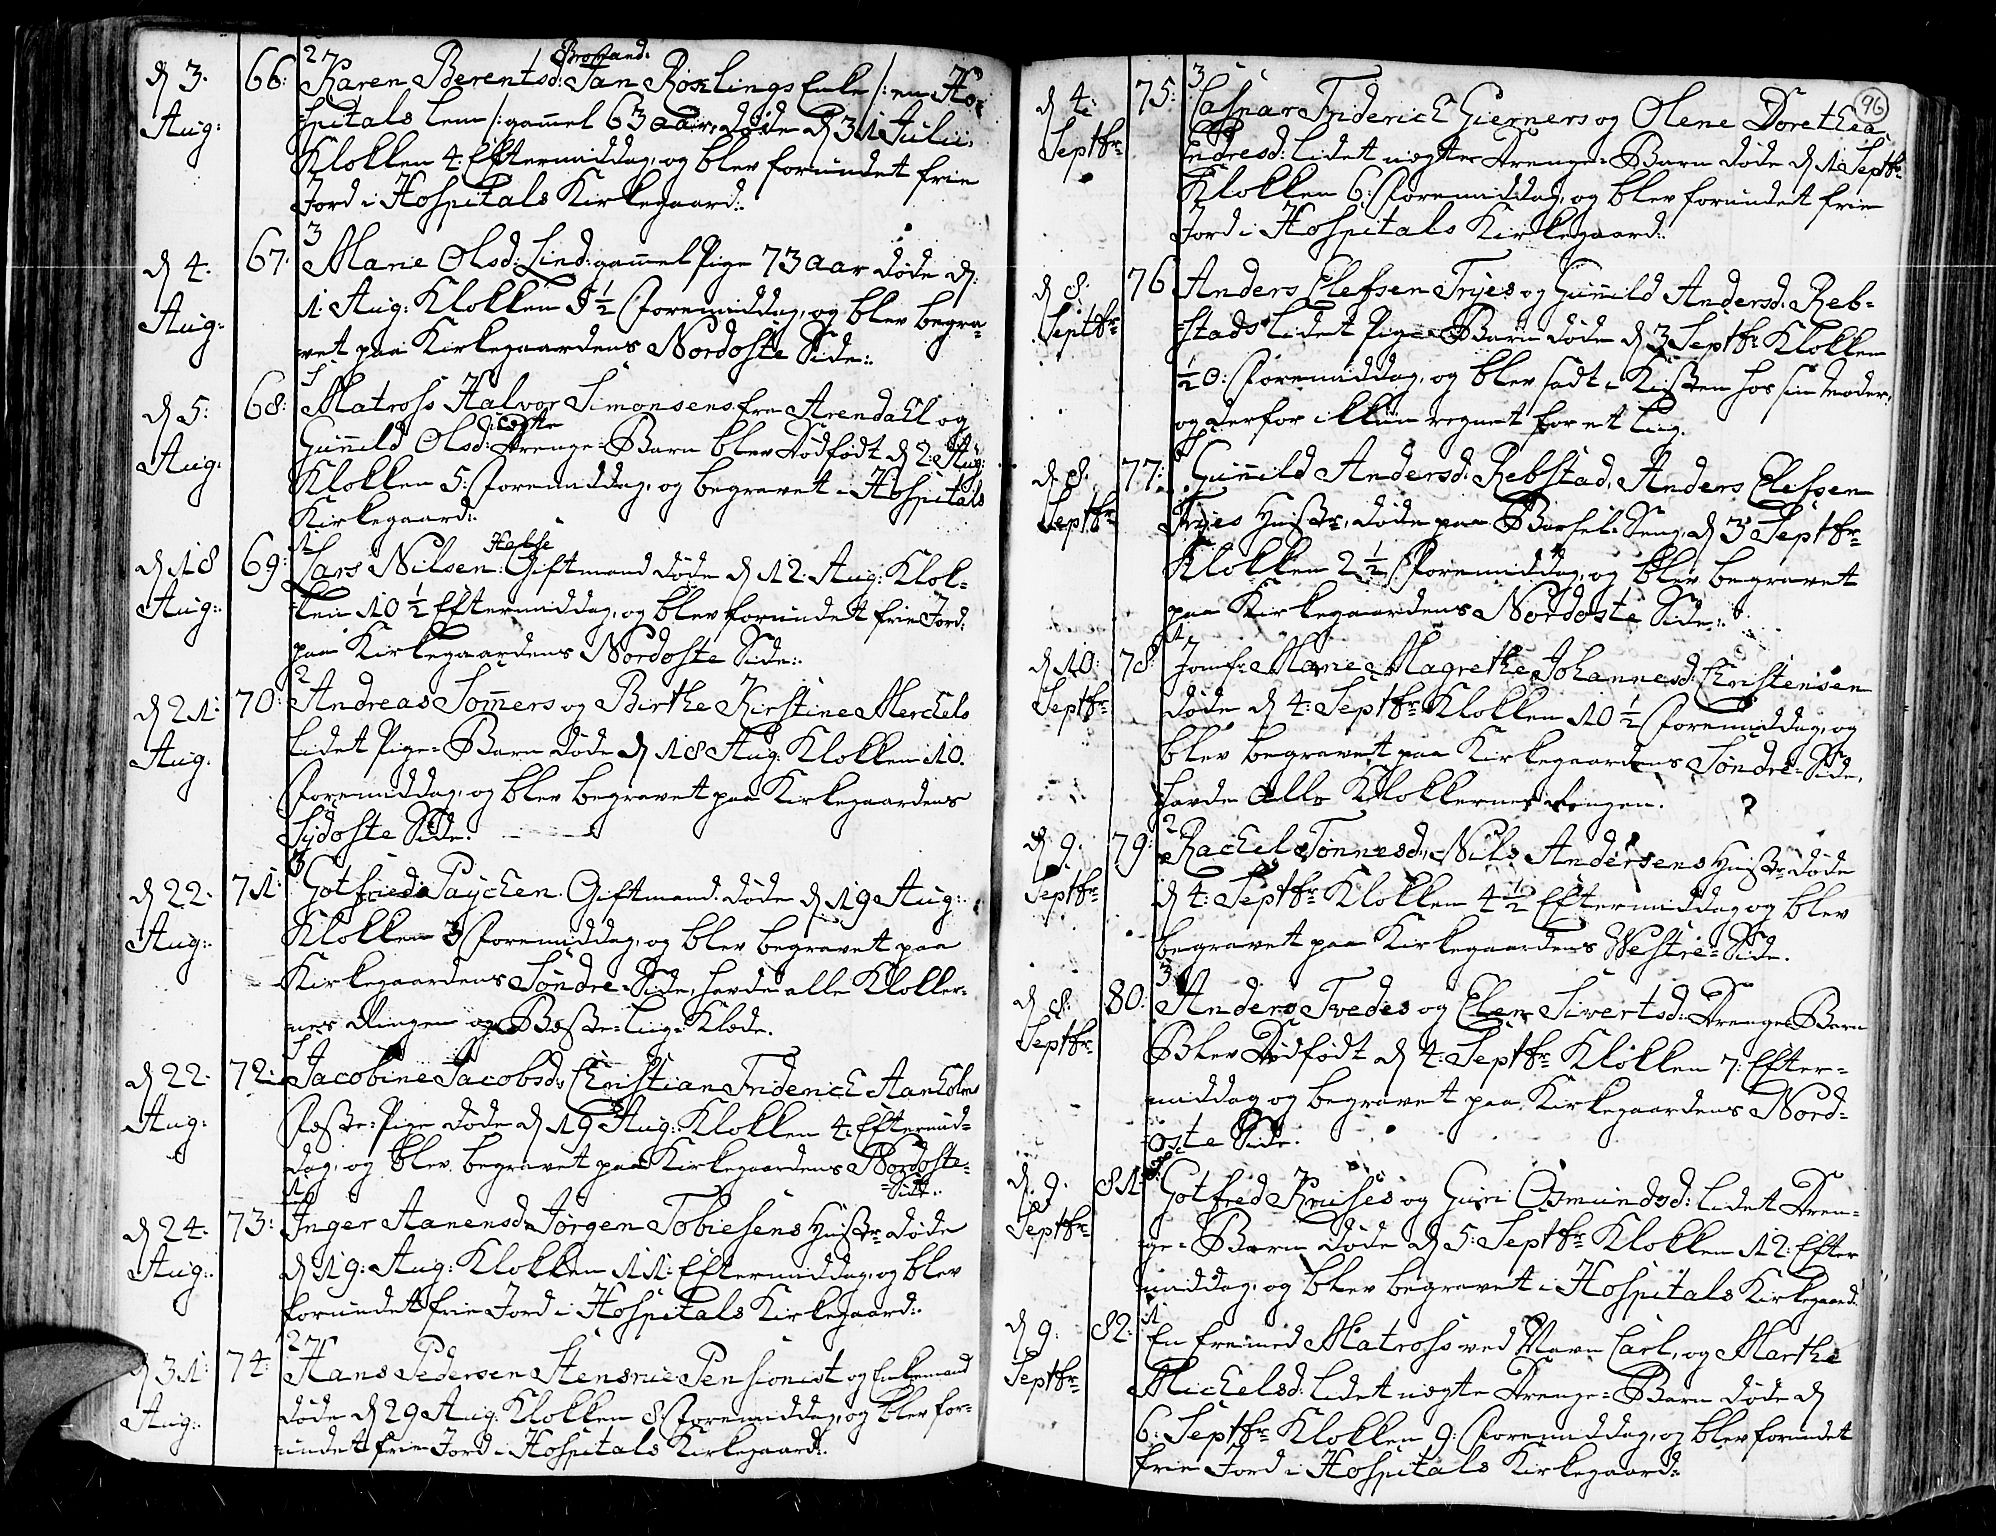 d 3. Aug: 66: 2 Karen Berentsd: Jan Röeslings Enke /: en Ho=
=spitals Lem :/ gamel 63 aar, døde d 31 Julii,
Klokken 4: Eftermiddag, og blev forundet frie
Jord i Hospitals Kirkegaard:.
3
d 4. Aug: 67. Marie Olsd: Lind: gamel Pige 73 aar døde d:
1. Aug: Klokken 5½ Formiddag, og blev begra=
vet paa Kirkegaardens Nordoste Side:.
d 5: Aug: 68: Matrofs Halvor Simonsens fra Arendahl og
Gunnild Olsd: ægte Drenge=Barn blev Dødfødt d 2: Aug:
Klokken 5: Formiddag, og begravet i Hospitals
Kirkegaard:.
1
d 18 Aug: 69: Lars Nilsen Giftmand døde d 12 Aug: Klok=
=ken 10½ Eftermiddag, og blev forundet frie Jord:
paa Kirkegaardens Nordoste Side:.
2
d 21: Aug. 70: Andreas Somers og Birthe Kirstine Merchels
lidet Pige=Barn døde d 18 Aug: Klokken 10.
Formiddag, og blev begravet paa Kirkegaardens
Sydoste Side:
3
d 22: Aug: 71: Gotfried Paychen Giftmand døde d 19 Aug:
Klokken 3 Formiddag, og blev begravet paa
Kirkegaardens Søndre=Side, havde alle Klokker=
nes Ringen og Bæste=Liig=Klæde.
d 22: Aug: 72: Jacobine Jacobsd: Christian Friderich Aanholm
Pige døde d 19 Aug: Klokken 4: Eftermid=
dag, og blev begravet paa Kirkegaardens Nordoste=
=Side:.
1
d 24: Aug: 73: Inger Aanensd: Jørgen Tobiesens Hustr: døde
d 19: Aug: Klokken 11: Eftermiddag, og blev
forundet frie Jord i Hospitals Kirkegaard:.
2
d 31: Aug: 74: Hans Pedersen Stensrue Pensionist og Enkemand
døde d 29 Aug: Klokken 8 Formiddag, og blev for=
=undet frie Jord i Hospitals Kirkegaard:.
96
3
d 4: Septbr: 75: Caspar Friderich Gierners og Olene Dorethea
Endresd: lidet uægte Drenge=Barn døde d 1 Septbr:
Klokken 6: Formiddag, og blev forundet frie
Jord i Hospitals Kirkegaard:.
d 8: Septbr: 76 Anders Elefsen Tryes og Gunnild Andersd: Reb=
=stads lidet Pige=Barn døde d 3 Septbr: Klokken
Formiddag, og blev sadt i Kisten hos sin Moder,
og derfor ikkun regnet for et Liig.
d 8. Septbr: 77: Gunnild Andersd: Rebstad, Anders Elefsen
Tryes Hustr:, døde paa Barsel=Seng, d 3 Septbr:
Klokken 2½ Formiddag, og blev begravet
paa Kirkegaardens Nordoste Side:.
1
d 10: Septbr: 78 Jomfr: Marie Magrethe Johannesd: Christensen
døde d 4: Septbr: Klokken 10½ Formiddag, og
blev begravet paa Kirkegaardens Søndre=Side,
havde Alle Klokkernes Ringen.
2
d 9. Septbr: 79: Rachel Tønnesd:, Nils Andersens Hustr: døde
d 4: Septbr: Klokken 4½ Eftermiddag og blev
begravet paa Kirkegaardens Westre=Side.
3
d 8: Septbr: 80: Anders Tvedes og Elen Sivertsd: Drenge=Barn
Blev Dødfødt d 4: Septbr: Klokken 7: Efter=
middag og begravet paa Kirkegaardens Nord=
oste Side.
d 9. Septbr: 81: Gotfred Kruses og Guri Osmundsd: lidet Dren=
ge=Barn døde d 5: Septbr: Klokken 12: Efter
middag, og blev begravet i Hospitals Kirkegaard:.
1
d 9. Septbr: 82: En fremed Matrofs ved Navn Carl, og Marthe
Michelsd: lidet uægte Drenge=Barn døde d
6: Septbr: Klokken 9: Formiddag, og blev forundet
frie Jord i Hospitals Kirkegaard: